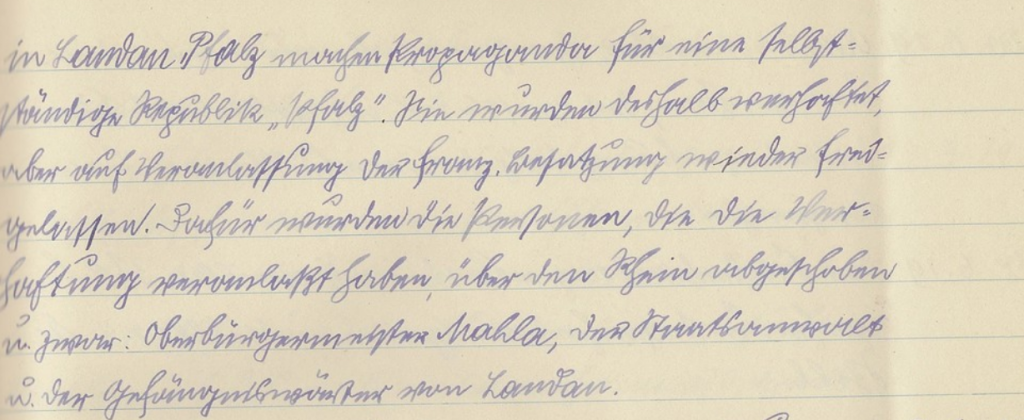 in Landau Pfalz machen Propaganda für eine selbst-
ständige Republik „Pfalz“. Sie wurden deshalb verhaftet,
aber auf Veranlassung der franz. Besatzung wieder frei-
gelassen. Dafür wurden die Personen, die die Ver-
haftung veranlaßt haben, über den Rhein abgeschoben
u. zwar: Oberbürgermeister Mahla, der Staatsanwalt
u. der Gefängniswärter von Landau.